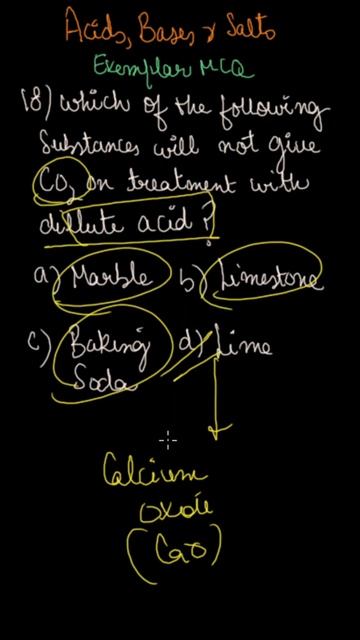 Acids, Bases & Salts
Exemplar MCQ
18) which of the following
Substances will not give
CO2 on treatment with
dillute acid ?
a) Marble b) Limestone
c) Baking Soda d) Lime
Calcium
oxide
(CaO)